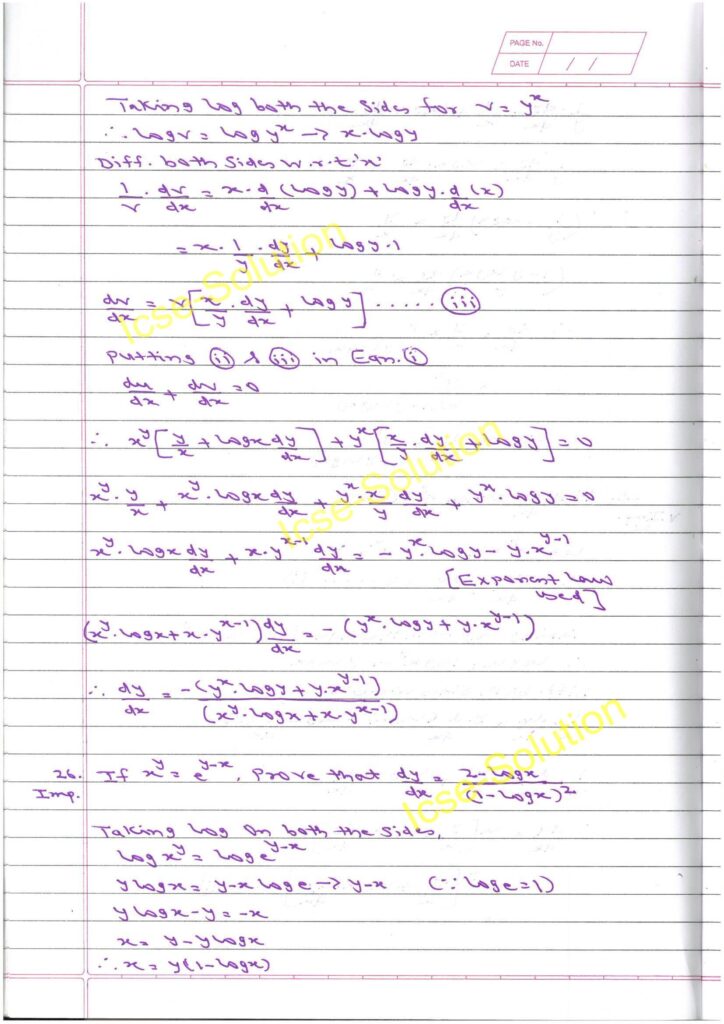 PAGE No.
DATE / /
Taking log both the sides for v = y^x
∴ log v = log y^x → x·log y
Diff. both sides w.r.t. 'x'
1/v · dv/dx = x·d/dx (log y) + log y·d/dx (x)
= x · 1/y · dy/dx + log y · 1
dv/dx = v[x/y · dy/dx + log y] ...... (iii)
Putting (ii) & (iii) in Eqn. (i)
du/dx + dv/dx = 0
∴ x^y [y/x + log x dy/dx] + y^x [x/y · dy/dx + log y] = 0
x^y · y/x + x^y · log x dy/dx + y^x · x/y dy/dx + y^x · log y = 0
x^y · log x dy/dx + x·y^x-1 dy/dx = - y^x · log y - y·x^y-1
[Exponent law
used]
(x^y · log x + x·y^x-1) dy/dx = - (y^x · log y + y·x^y-1)
∴ dy/dx = -(y^x · log y + y·x^y-1) / (x^y · log x + x·y^x-1)
26. If x^y = e^y-x, Prove that dy/dx = 2-log x / (1-log x)^2
Imp.
Taking log on both the sides,
log x^y = log e^y-x
y log x = y-x log e → y-x (∵ log e = 1)
y log x - y = -x
x = y - y log x
∴ x = y(1-log x)
Icse-Solution
Icse-Solution
Icse-Solution